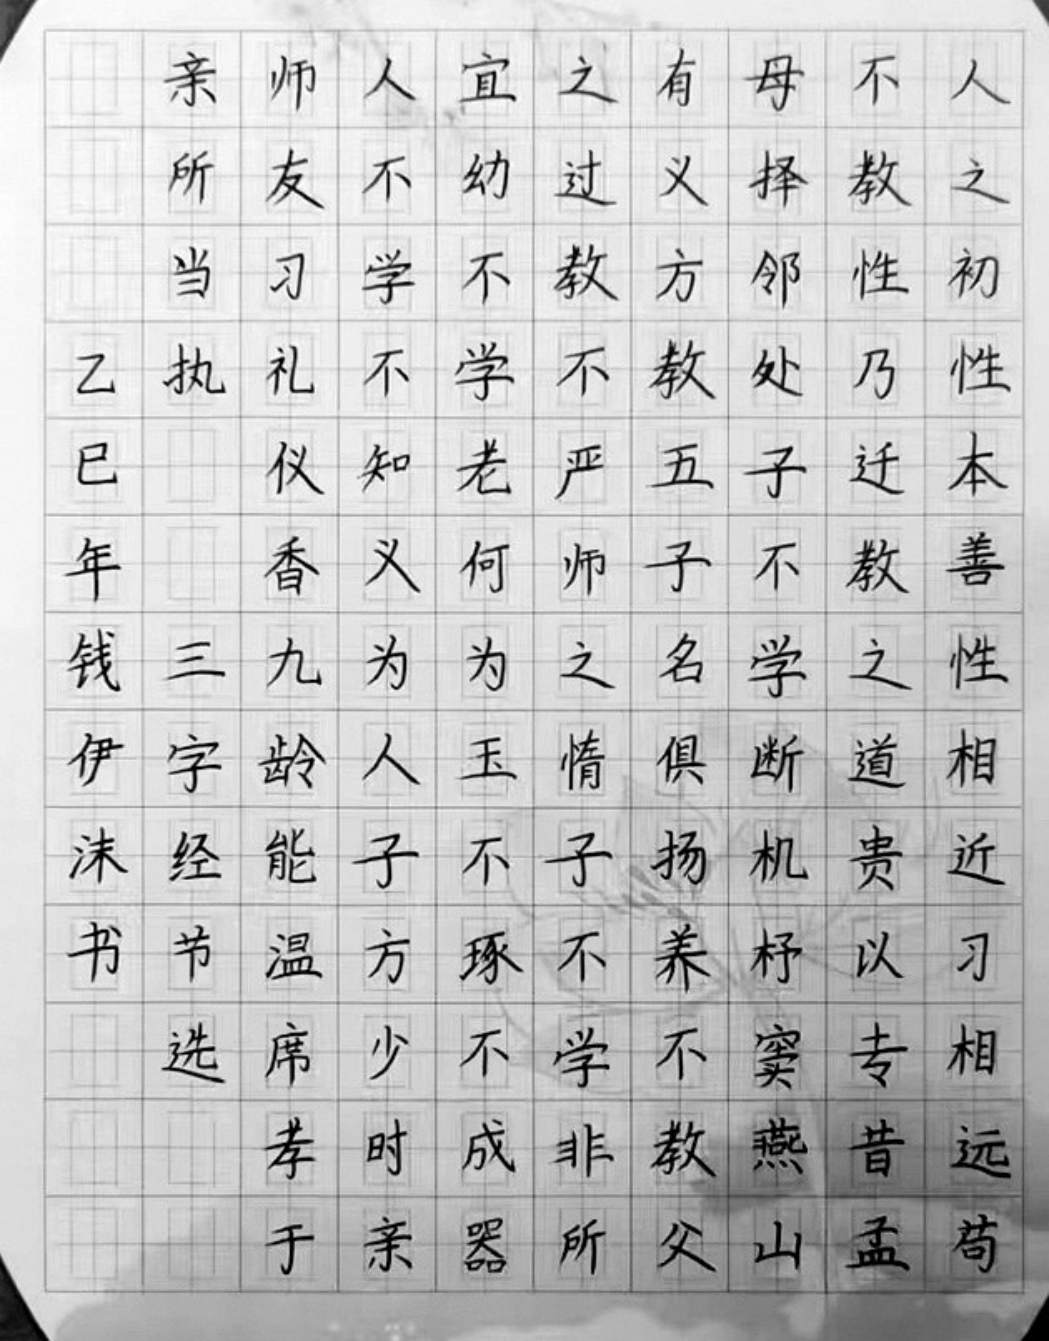 人之初性本善性相近习相远苟
不教性乃迁教之道贵以专昔孟
母择邻处子不学断机杼窦燕山
有义方教五子名俱扬养不教父
之过教不严师之惰子不学非所
宜幼不学老何为玉不琢不成器
人不学不知义为人子方少时亲
师友习礼仪香九龄能温席孝于
亲所当执三字经节选
乙巳年钱伊沫书